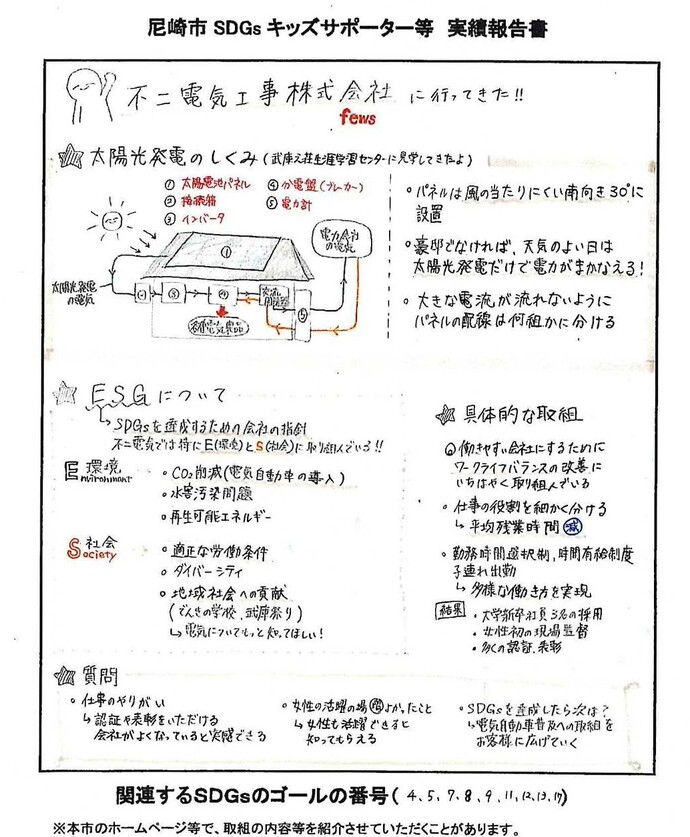 尼崎市 SDGs キッズサポーター等 実績報告書
不二電気工事株式会社 に行ってきた!!
fews
太陽光発電のしくみ (武庫之荘生涯学習センターに見学してきたよ)
① 太陽電池パネル
② 接続箱
③ インバータ
④ 分電盤(ブレーカー)
⑤ 電力計
電力会社
の電気
①
太陽光発電
の電気
②
③
④
⑤
家庭電気製品
・パネルは風の当たりにくい南向き30°に
設置
・豪邸でなければ、天気のよい日は
太陽光発電だけで電力がまかなえる!
・大きな電流が流れないように
パネルの配線は何組かに分ける
ESGについて
↳SDGsを達成するための会社の指針
不二電気では特にE(環境)とS(社会)に取り組んでいる!!
E 環境
Environment
・CO₂削減(電気自動車の導入)
・水害汚染問題
・再生可能エネルギー
S 社会
Society
・適正な労働条件
・ダイバーシティ
・地域社会への貢献
(でんきの学校、武庫祭り)
↳電気についてもっと知ってほしい!
具体的な取組
◎働きやすい会社にするために
ワークライフバランスの改善に
いちはやく取り組んでいる
・仕事の役割を細かく分ける
↳平均残業時間 減
・勤務時間選択制、時間有給制度
子連れ出勤
↳多様な働き方を実現
結果
・大学新卒社員3名の採用
・女性初の現場監督
・多くの認証、表彰
質問
・仕事のやりがい
↳認証や表彰をいただける
会社がよくなっていると実感できる
・女性の活躍の場 増 よかったこと
↳女性も活躍できると
知ってもらえる
・SDGsを達成したら次は?
↳電気自動車普及への取組を
お客様に広げていく
関連するSDGsのゴールの番号( 4、5、7、8、9、11、12、13、17)
※本市のホームページ等で、取組の内容等を紹介させていただくことがあります。